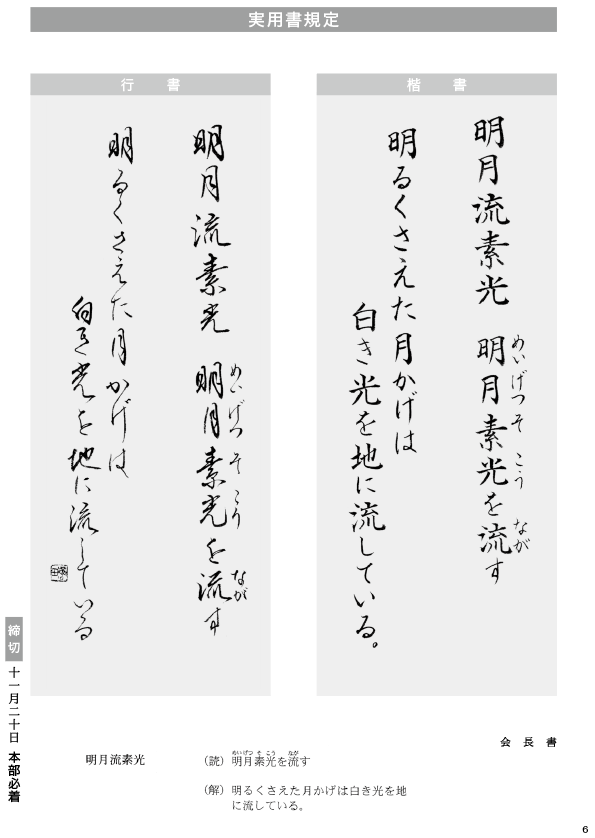 実用書規定
楷書
明月流素光 明月素光を流す
めいげつそこう なが
明るくさえた月かげは
白き光を地に流している。
行書
明月流素光 明月素光を流す
めいげつそこう なが
明るくさえた月かげは
白き光を地に流している
会長書
明月流素光
（読）明月素光を流す
めいげつ そ こう なが
（解）明るくさえた月かげは白き光を地
に流している。
締切 十一月二十日 本部必着
6